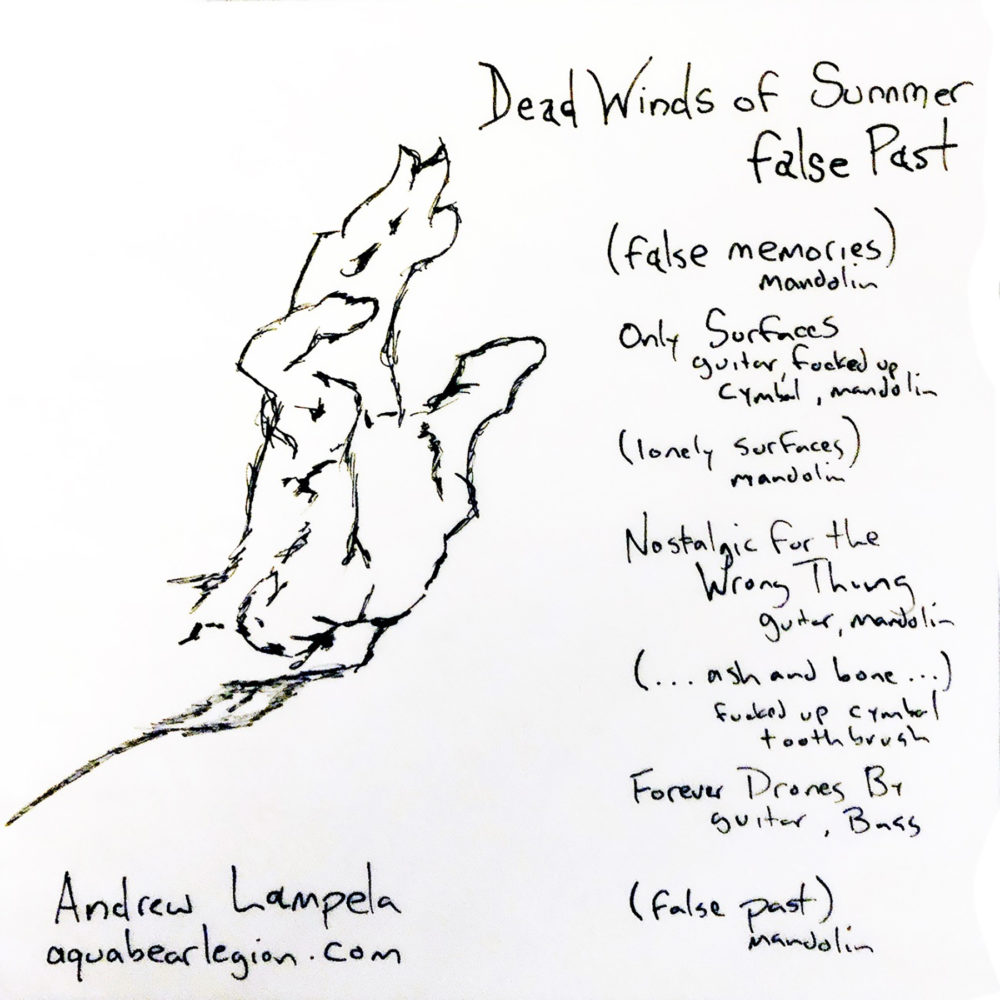 Dead Winds of Summer
False Past
(false memories)
mandolin
Only Surfaces
guitar, fucked up
cymbal, mandolin
(lonely surfaces)
mandolin
Nostalgic for the
Wrong Thing
guitar, mandolin
(... ash and bone ...)
fucked up cymbal
toothbrush
Forever Drones By
guitar, Bass
(false past)
mandolin
Andrew Lampela
aquabearlegion.com